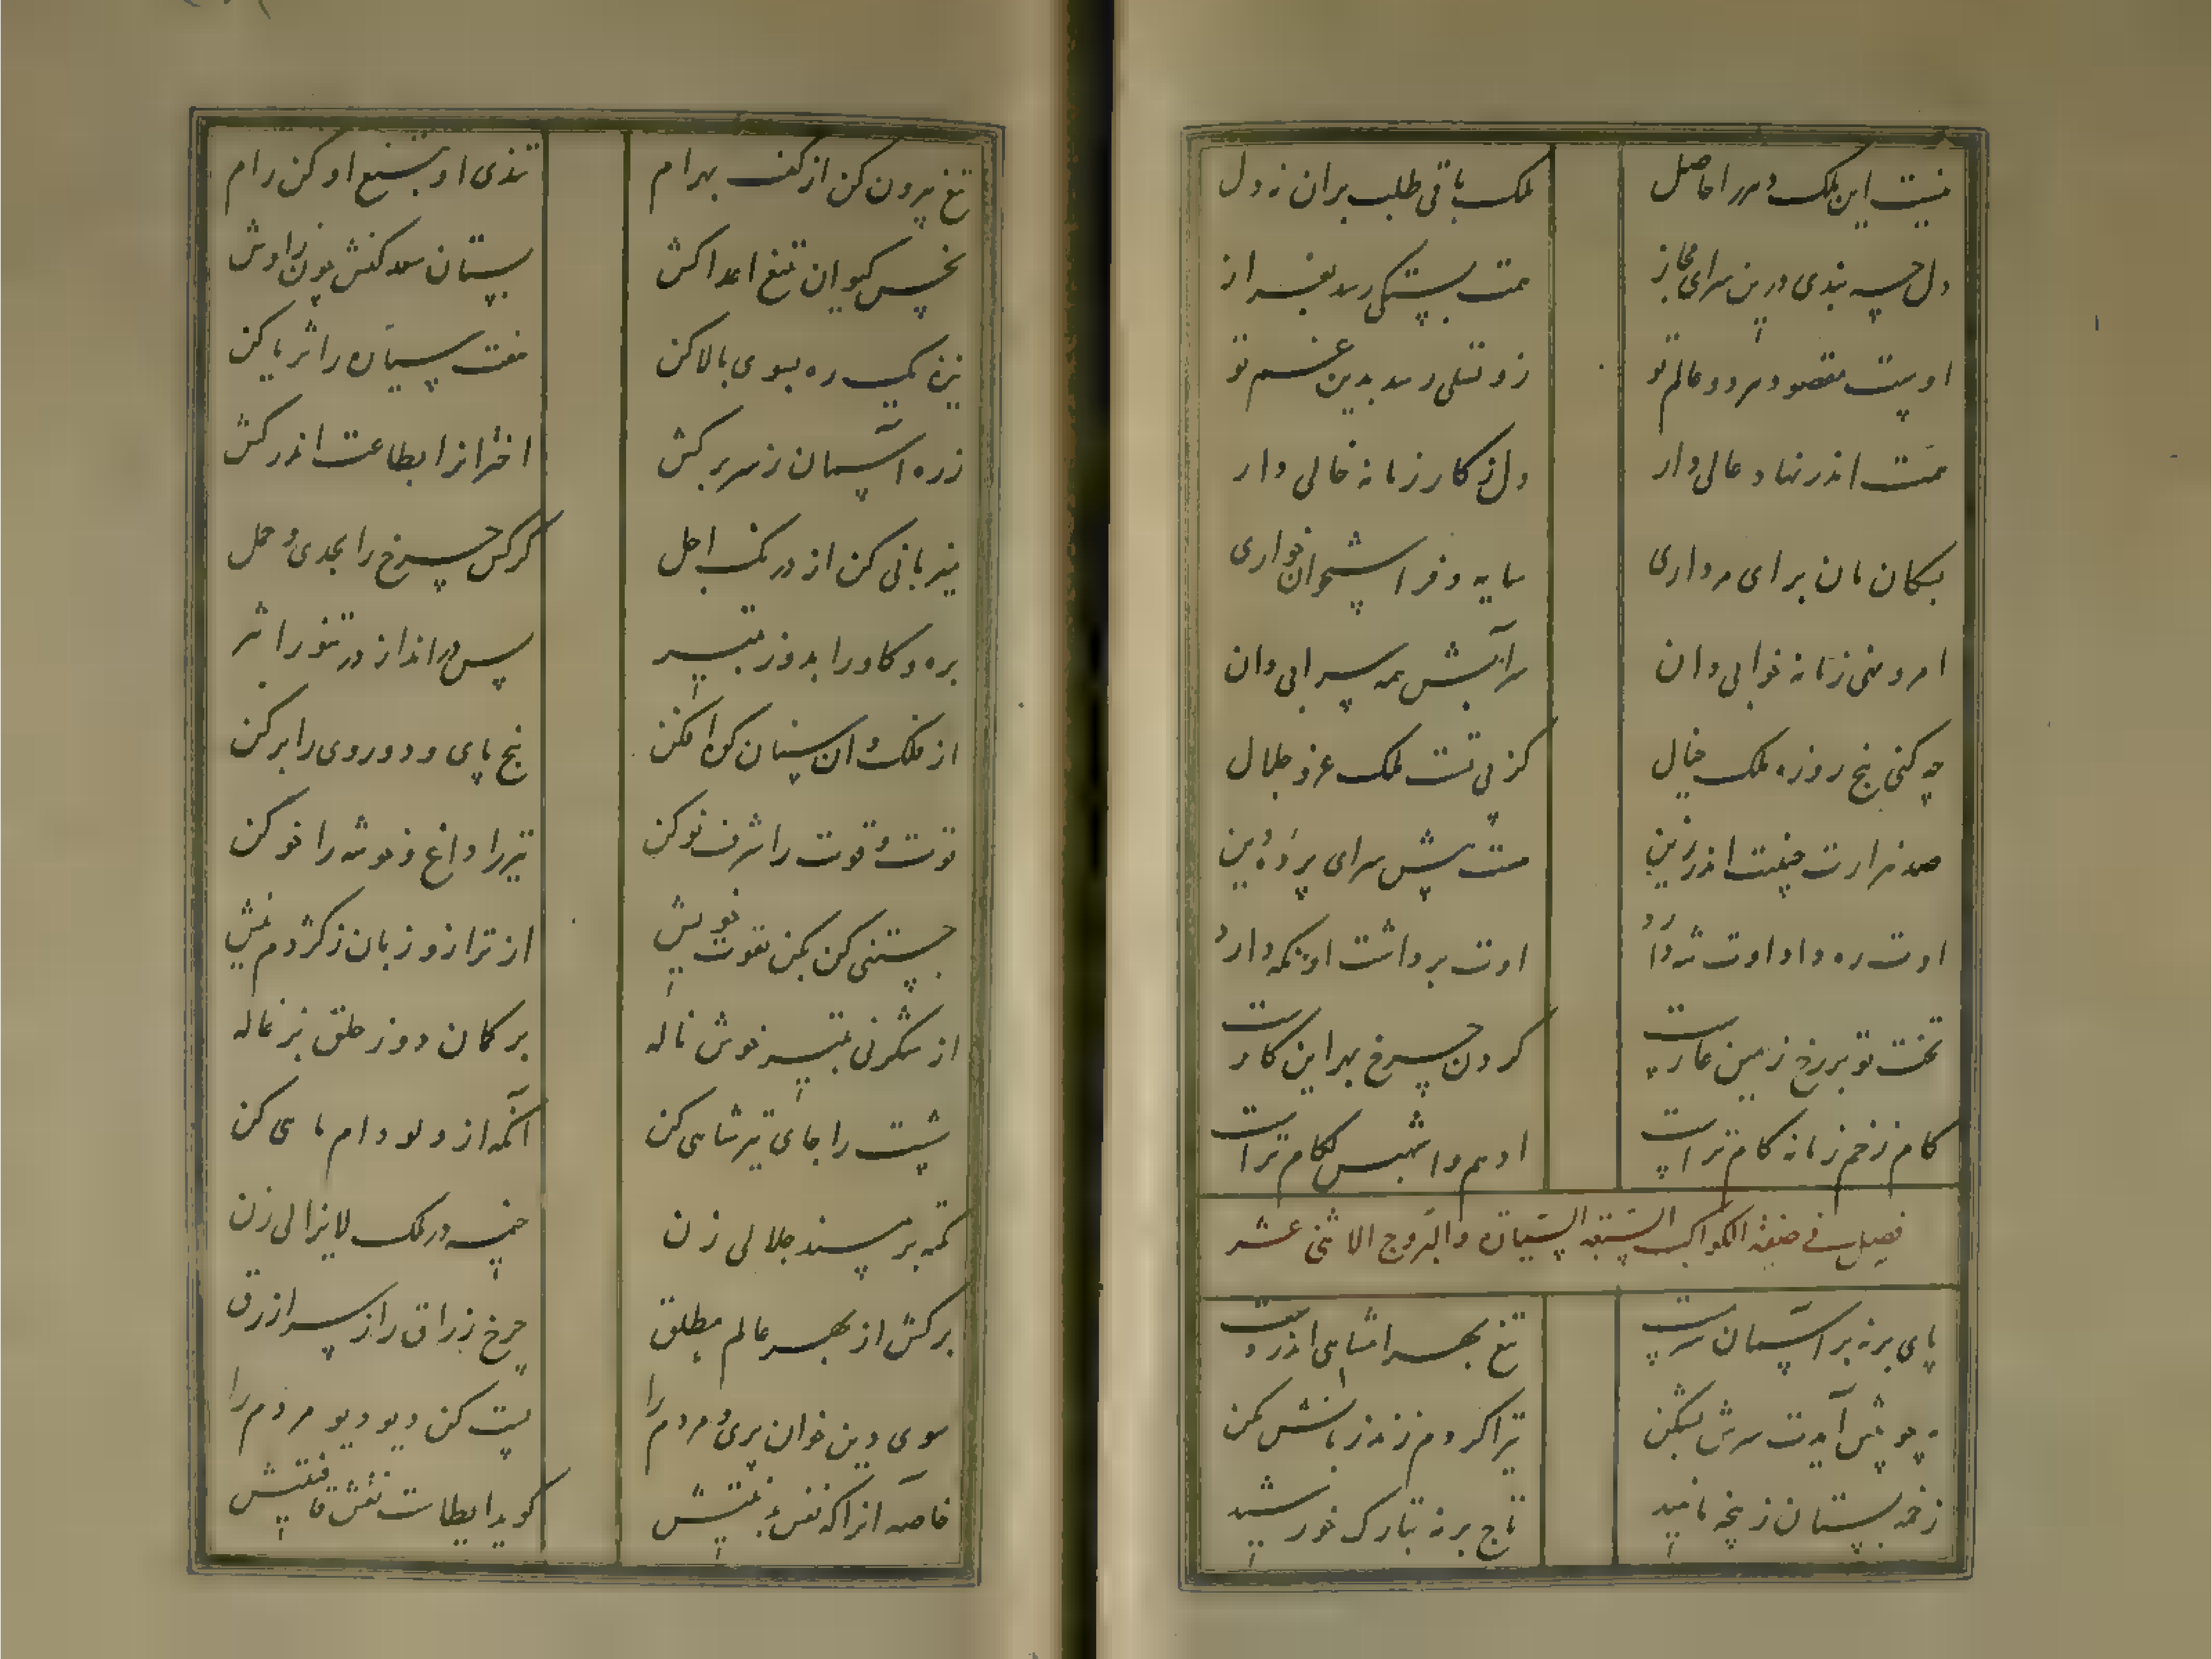 نیست این ملک دهر را حاصل ملک باقی طلب بران نه دل
دل چه بندی درین سرای مجاز همت پستکی رسد بفراز
اوست مقصود هر دو عالم تو زو تسلی رسد بدین غم تو
همت اندر نهاد عالی دار دل ز کار زمانه خالی دار
بسکان مان برای مرداری سایه و فر استخوان خواری
امر و نهی زمانه خوابی دان سر آبش همه سرابی دان
چه کنی پنج روزه ملک خیال کز پی تست ملک عز و جلال
صد هزارت اندر زین هست پیش سرای پرده دین
اوت ره داد اوت شه دارد اوت برداشت او نکه دارد
تخت تو بر رخ زمین عارست کردن چرخ بهر این کارست
کام زخم زمانه کام تراست ادهم و اشهبس لکام تراست
فصل فی صفة الکواکب السبعة السیارة والبروج الاثنی عشر
پای برنه بر آسمان تیغ بهرام شاهی اندر دست
مه چو پیش آیدت سرش بشکن تیر اگر دم زند زبانش بکن
زخمه بستان ز پنجه ناهید تاج برنه بتارک خورشید
تیغ بیرون کن از کف بهرام تندی او بتیغ او کن رام
نحس کیوان تیغ اعدا کش بستان سعد کنش چون زاوش
نیزه یک ره بسوی بالا کن هفت سیاره را ثریا کن
زره آسمان ز سر برکش اخترانرا بطاعت اندر کش
میزبانی کن از در یک اجل کرکس چرخ را بجدی و حمل
بره و کاو را بدوز بتیر پس در انداز در تنور اثیر
از فلک وان سنان کوه افکن پنج پای و دو روی را برکن
قوت و قوت را شرف نو کن تیر را داغ و خوشه را خو کن
جستنی کن یکی بقوت خویش از ترازو زبان ز کژدم نیش
از شکرفی بتیر خوش ناله بر کمان دوز حلق بزغاله
شست را جای تیر شاهی کن آنکه از دلو دام ماهی کن
تکیه بر مسند جلالی زن خیمه در ملک لایزالی زن
برکش از بهر عالم مطلق چرخ زراق را ز سر ازرق
سوی دین خوان پری و مردم را پست کن دیو و دیو مردم را
خاصه آنرا که نفس کوید ابطات نفس